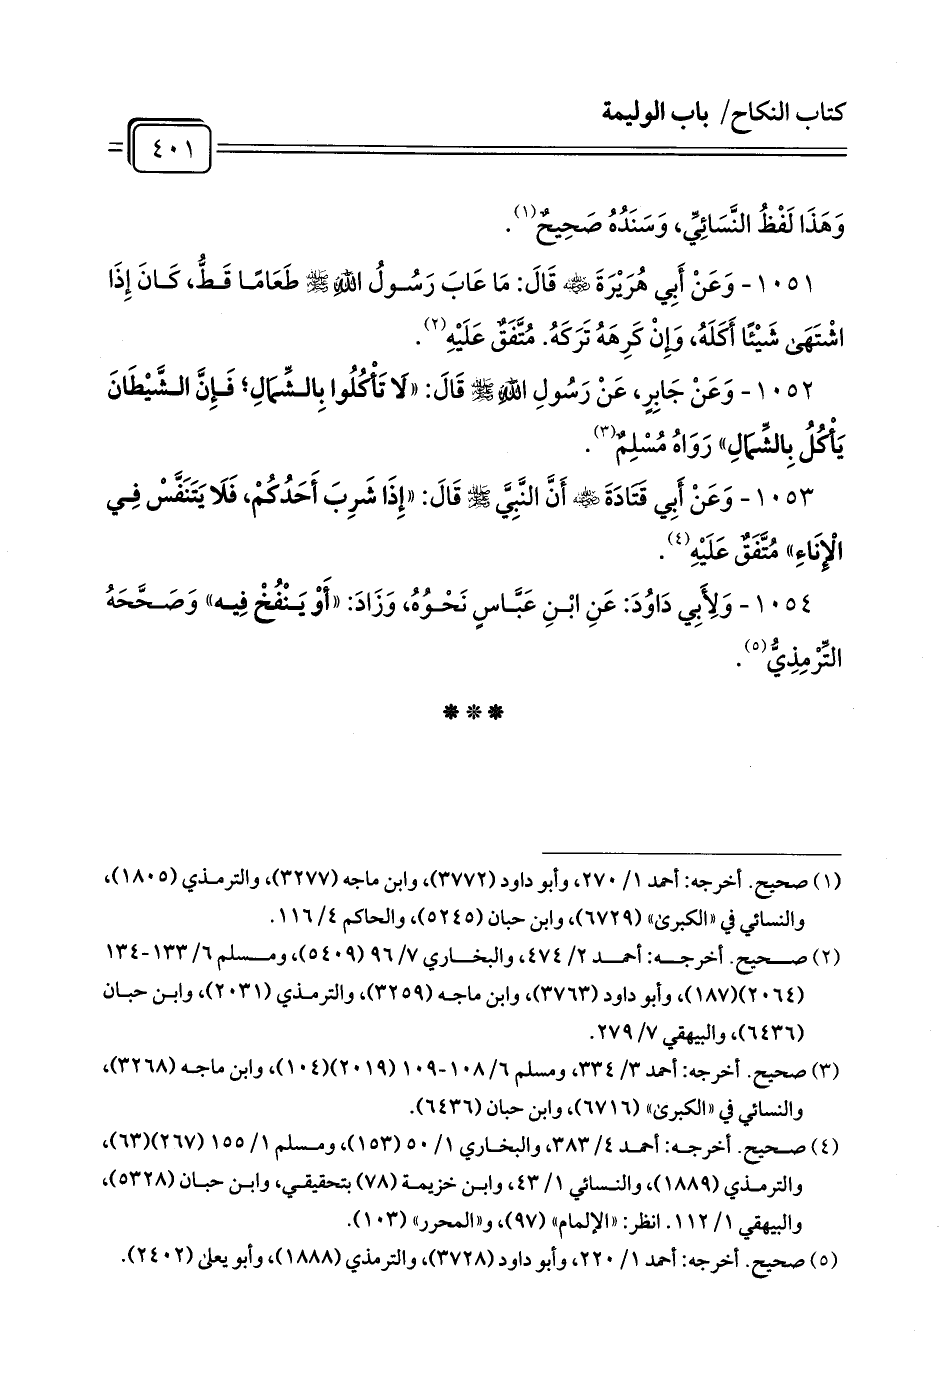 كتاب النكاح/ باب الوليمة
٤٠١
وَهَذَا لَفْظُ النَّسَائِيِّ، وَسَنَدُهُ صَحِيحٌ(١).
١٠٥١- وَعَنْ أَبِي هُرَيْرَةَ ﵁ قَالَ: مَا عَابَ رَسُولُ اللهِ ﷺ طَعَامًا قَطُّ، كَانَ إِذَا
اشْتَهَىٰ شَيْئًا أَكَلَهُ، وَإِنْ كَرِهَهُ تَرَكَهُ. مُتَّفَقٌ عَلَيْهِ(٢).
١٠٥٢- وَعَنْ جَابِرٍ، عَنْ رَسُولِ اللهِ ﷺ قَالَ: «لَا تَأْكُلُوا بِالشِّمَالِ؛ فَإِنَّ الشَّيْطَانَ
يَأْكُلُ بِالشِّمَالِ» رَوَاهُ مُسْلِمٌ(٣).
١٠٥٣- وَعَنْ أَبِي قَتَادَةَ ﵁ أَنَّ النَّبِيَّ ﷺ قَالَ: «إِذَا شَرِبَ أَحَدُكُمْ، فَلَا يَتَنَفَّسْ فِي
الْإِنَاءِ» مُتَّفَقٌ عَلَيْهِ(٤).
١٠٥٤- وَلِأَبِي دَاوُدَ: عَنِ ابْنِ عَبَّاسٍ نَحْوُهُ، وَزَادَ: «أَوْ يَنْفُخْ فِيهِ» وَصَحَّحَهُ
التِّرْمِذِيُّ(٥).
***
(١) صحيح. أخرجه: أحمد ١/ ٢٧٠، وأبو داود (٣٧٧٢)، وابن ماجه (٣٢٧٧)، والترمذي (١٨٠٥)،
والنسائي في «الكبرىٰ» (٦٧٢٩)، وابن حبان (٥٢٤٥)، والحاكم ٤/ ١١٦.
(٢) صحيح. أخرجه: أحمد ٢/ ٤٧٤، والبخاري ٧/ ٩٦ (٥٤٠٩)، ومسلم ٦/ ١٣٣-١٣٤
(٢٠٦٤)(١٨٧)، وأبو داود (٣٧٦٣)، وابن ماجه (٣٢٥٩)، والترمذي (٢٠٣١)، وابن حبان
(٦٤٣٦)، والبيهقي ٧/ ٢٧٩.
(٣) صحيح. أخرجه: أحمد ٣/ ٣٣٤، ومسلم ٦/ ١٠٨-١٠٩ (٢٠١٩)(١٠٤)، وابن ماجه (٣٢٦٨)،
والنسائي في «الكبرىٰ» (٦٧١٦)، وابن حبان (٦٤٣٦).
(٤) صحيح. أخرجه: أحمد ٤/ ٣٨٣، والبخاري ١/ ٥٠ (١٥٣)، ومسلم ١/ ١٥٥ (٢٦٧)(٦٣)،
والترمذي (١٨٨٩)، والنسائي ١/ ٤٣، وابن خزيمة (٧٨) بتحقيقي، وابن حبان (٥٣٢٨)،
والبيهقي ١/ ١١٢. انظر: «الإلمام» (٩٧)، و«المحرر» (١٠٣).
(٥) صحيح. أخرجه: أحمد ١/ ٢٢٠، وأبو داود (٣٧٢٨)، والترمذي (١٨٨٨)، وأبو يعلىٰ (٢٤٠٢).